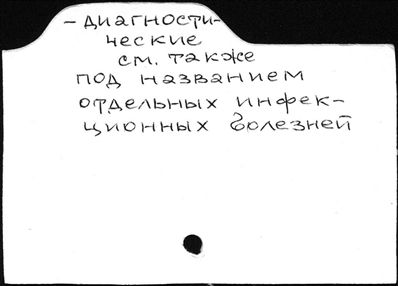 – ДИАГНОСТИ-
ЧЕСКИЕ
см. также
под названием
отдельных инфек-
ционных болезней